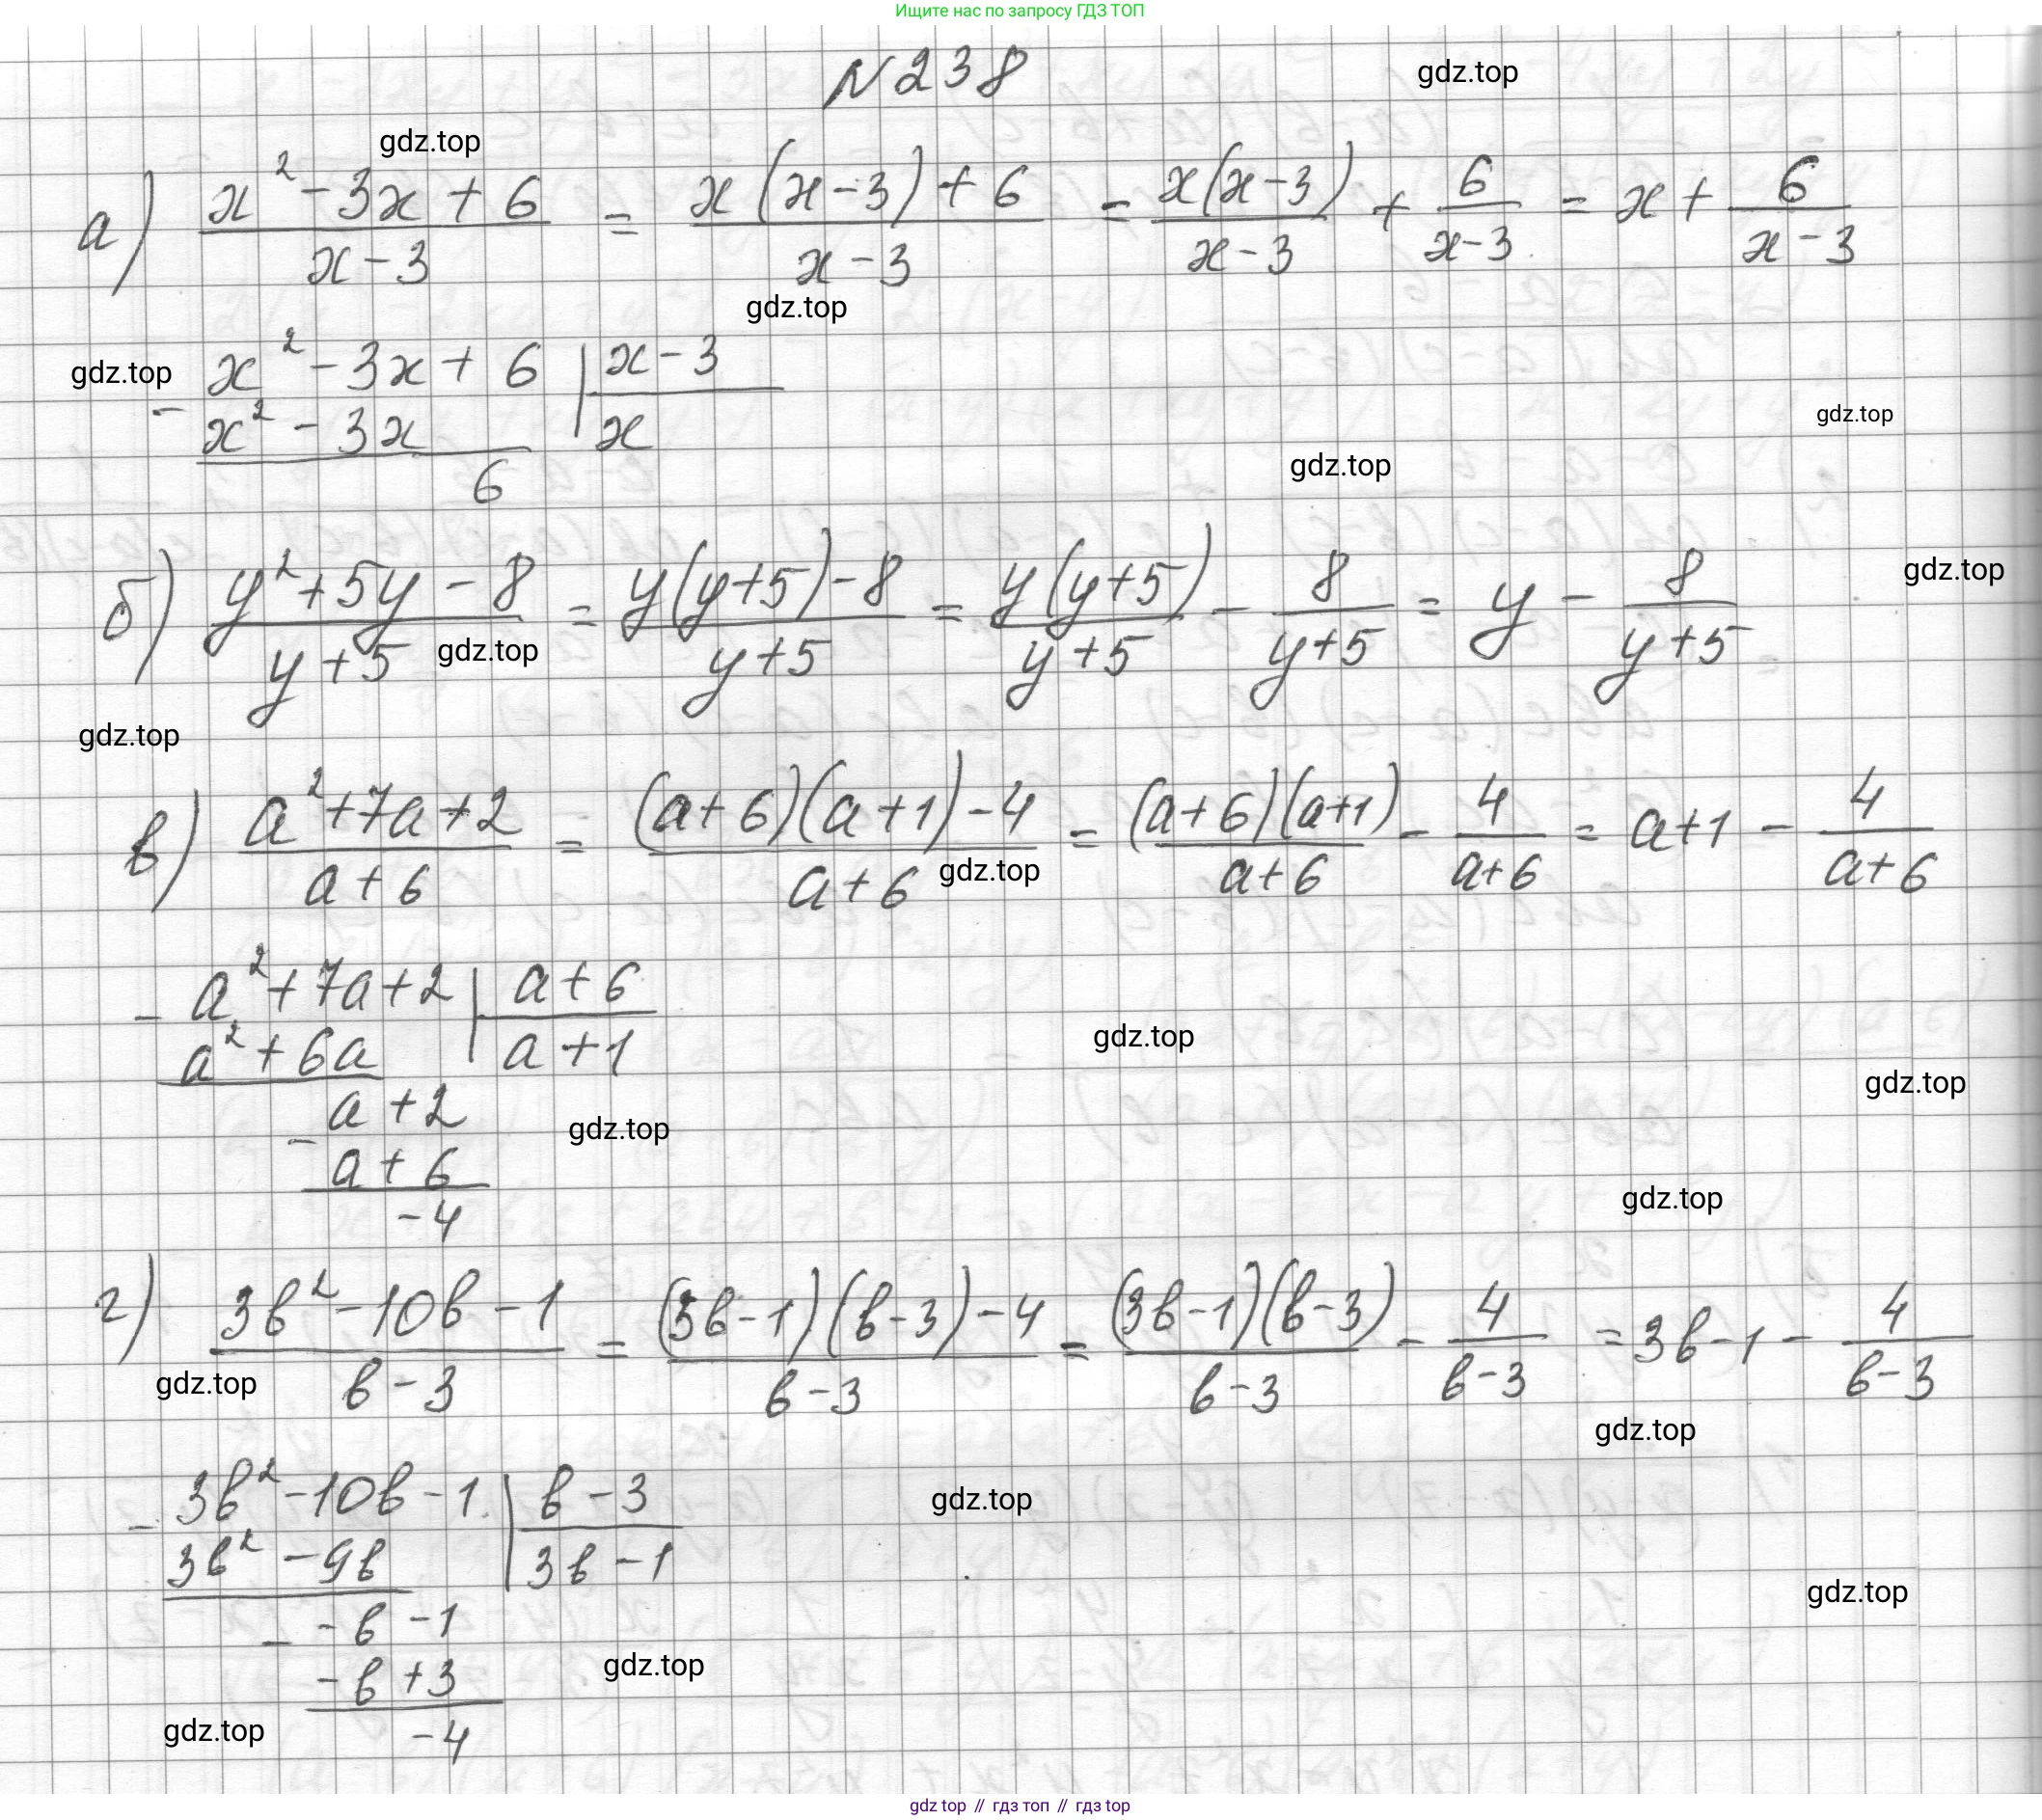 Ищите нас по запросу ГДЗ ТОП
N 238
gdz.top
gdz.top
а) (x² - 3x + 6)/(x - 3) = (x(x - 3) + 6)/(x - 3) = x(x - 3)/(x - 3) + 6/(x - 3) = x + 6/(x - 3)
gdz.top
gdz.top
- x² - 3x + 6 | x - 3
x² - 3x | x
6
gdz.top
gdz.top
б) (y² + 5y - 8)/(y + 5) = (y(y + 5) - 8)/(y + 5) = y(y + 5)/(y + 5) - 8/(y + 5) = y - 8/(y + 5)
gdz.top
gdz.top
gdz.top
в) (a² + 7a + 2)/(a + 6) = ((a + 6)(a + 1) - 4)/(a + 6) = (a + 6)(a + 1)/(a + 6) - 4/(a + 6) = a + 1 - 4/(a + 6)
gdz.top
- a² + 7a + 2 | a + 6
a² + 6a | a + 1
gdz.top
gdz.top
a + 2
gdz.top
- a + 6
-4
gdz.top
г) (3в² - 10в - 1)/(в - 3) = ((3в - 1)(в - 3) - 4)/(в - 3) = (3в - 1)(в - 3)/(в - 3) - 4/(в - 3) = 3в - 1 - 4/(в - 3)
gdz.top
gdz.top
- 3в² - 10в - 1 | в - 3
gdz.top
3в² - 9в | 3в - 1
gdz.top
- -в - 1
gdz.top
-в + 3
gdz.top
-4
gdz top // гдз топ // гдз top